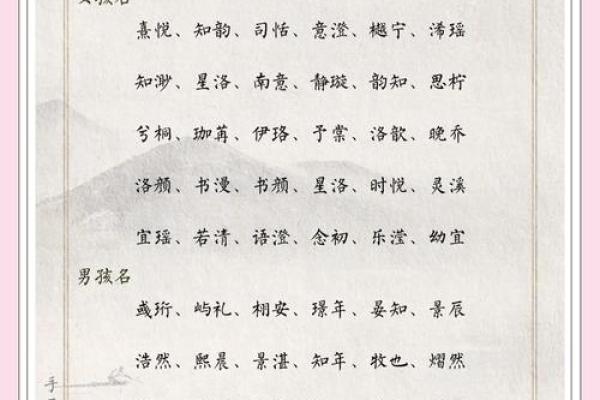 女孩名
熹悦、知韵、司恬、意澄、樾宁、浠瑶
知渺、星洛、南意、静璇、韵知、思柠
兮桐、珈苒、伊珞、予棠、洛歆、晚乔
洛颜、书漫、书颜、星洛、时悦、灵溪
宜瑶、若清、语澄、念初、乐滢、幼宜
男孩名
彧珩、屿礼、栩安、璟年、晏知、景辰
浩然、熙晨、景湛、知年、牧也、熠然
手